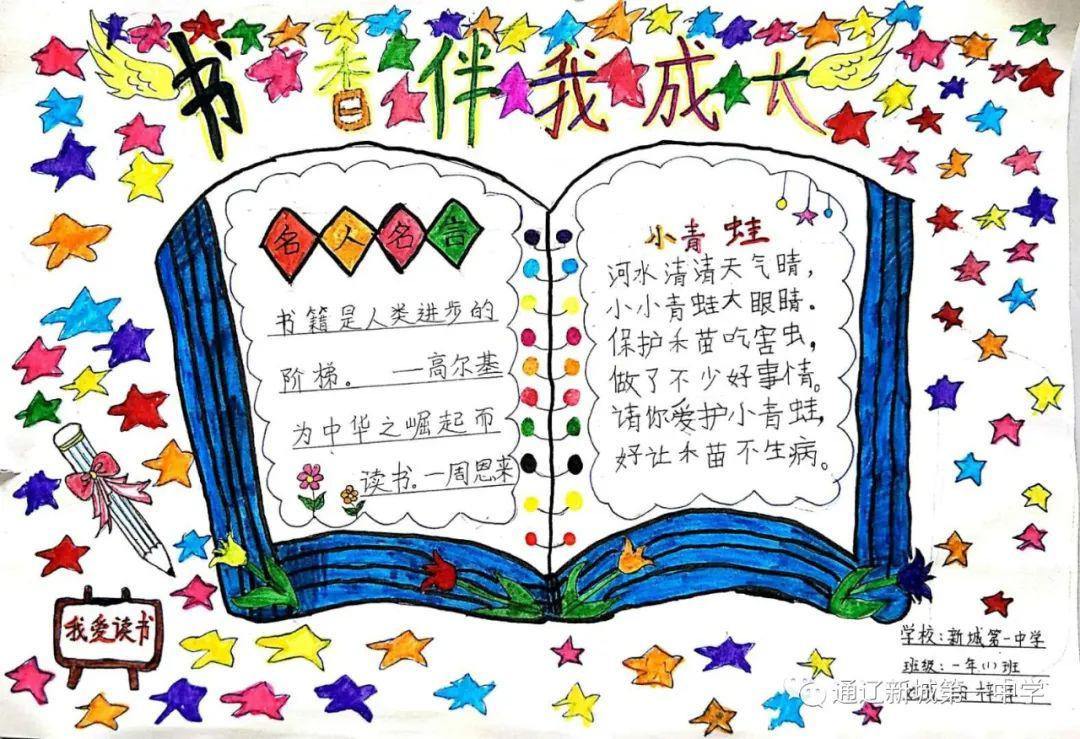 书香伴我成长
名人名言
书籍是人类进步的
阶梯。 —高尔基
为中华之崛起而
读书。—周恩来
小青蛙
河水清清天气晴，
小小青蛙大眼睛。
保护禾苗吃害虫，
做了不少好事情。
请你爱护小青蛙，
好让禾苗不生病。
我爱读书
学校：新城第一中学
班级：一年(1)班
通辽新城第一中学